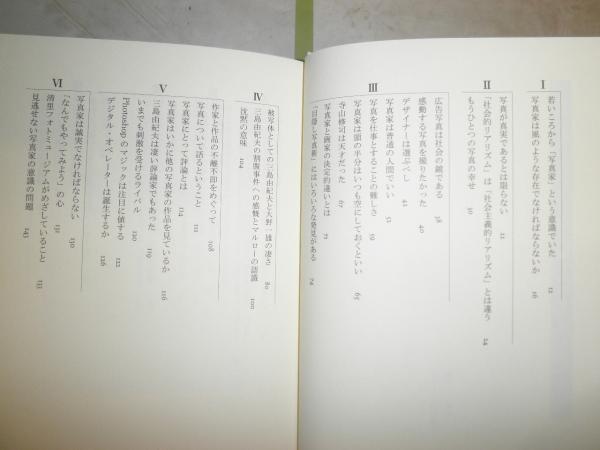 I
若いころから「写真家」という意識でいた 12
写真家は風のような存在でなければならないか 16
II
写真が真実であるとは限らない
「社会的リアリズム」は「社会主義的リアリズム」とは違う 24
もうひとつの写真の幸せ
III
広告写真は社会の鏡である 38
感動する写真を撮りたかった 40
デザイナーは選ぶべし 42
写真家は普通の人間でいい 51
写真を仕事とすることの難しさ
写真家は頭の半分はいつも空にしておくといい 65
寺山修司は天才だった 67
写真家と画家の決定的違いとは 71
「目隠し写真術」にはいろいろな発見がある 74
IV
被写体としての三島由紀夫と大野一雄の凄さ 80
三島由紀夫の割腹事件への感慨とマルローの認識 100
沈黙の意味 104
V
作家と作品の不離不即をめぐって 108
写真について語るということ 111
写真家にとって評論とは 114
写真家はいかに他の写真家の作品を見ているか 116
三島由紀夫は凄い評論家でもあった 119
いまでも刺激を受けるライバル 120
Photoshopのマジックは注目に値する 122
デジタル・オペレーターは誕生するか 126
VI
写真家は誠実でなければならない 130
「なんでもやってみよう」の心 132
清里フォトミュージアムがめざしていること 135
見逃せない写真家の意識の問題 145